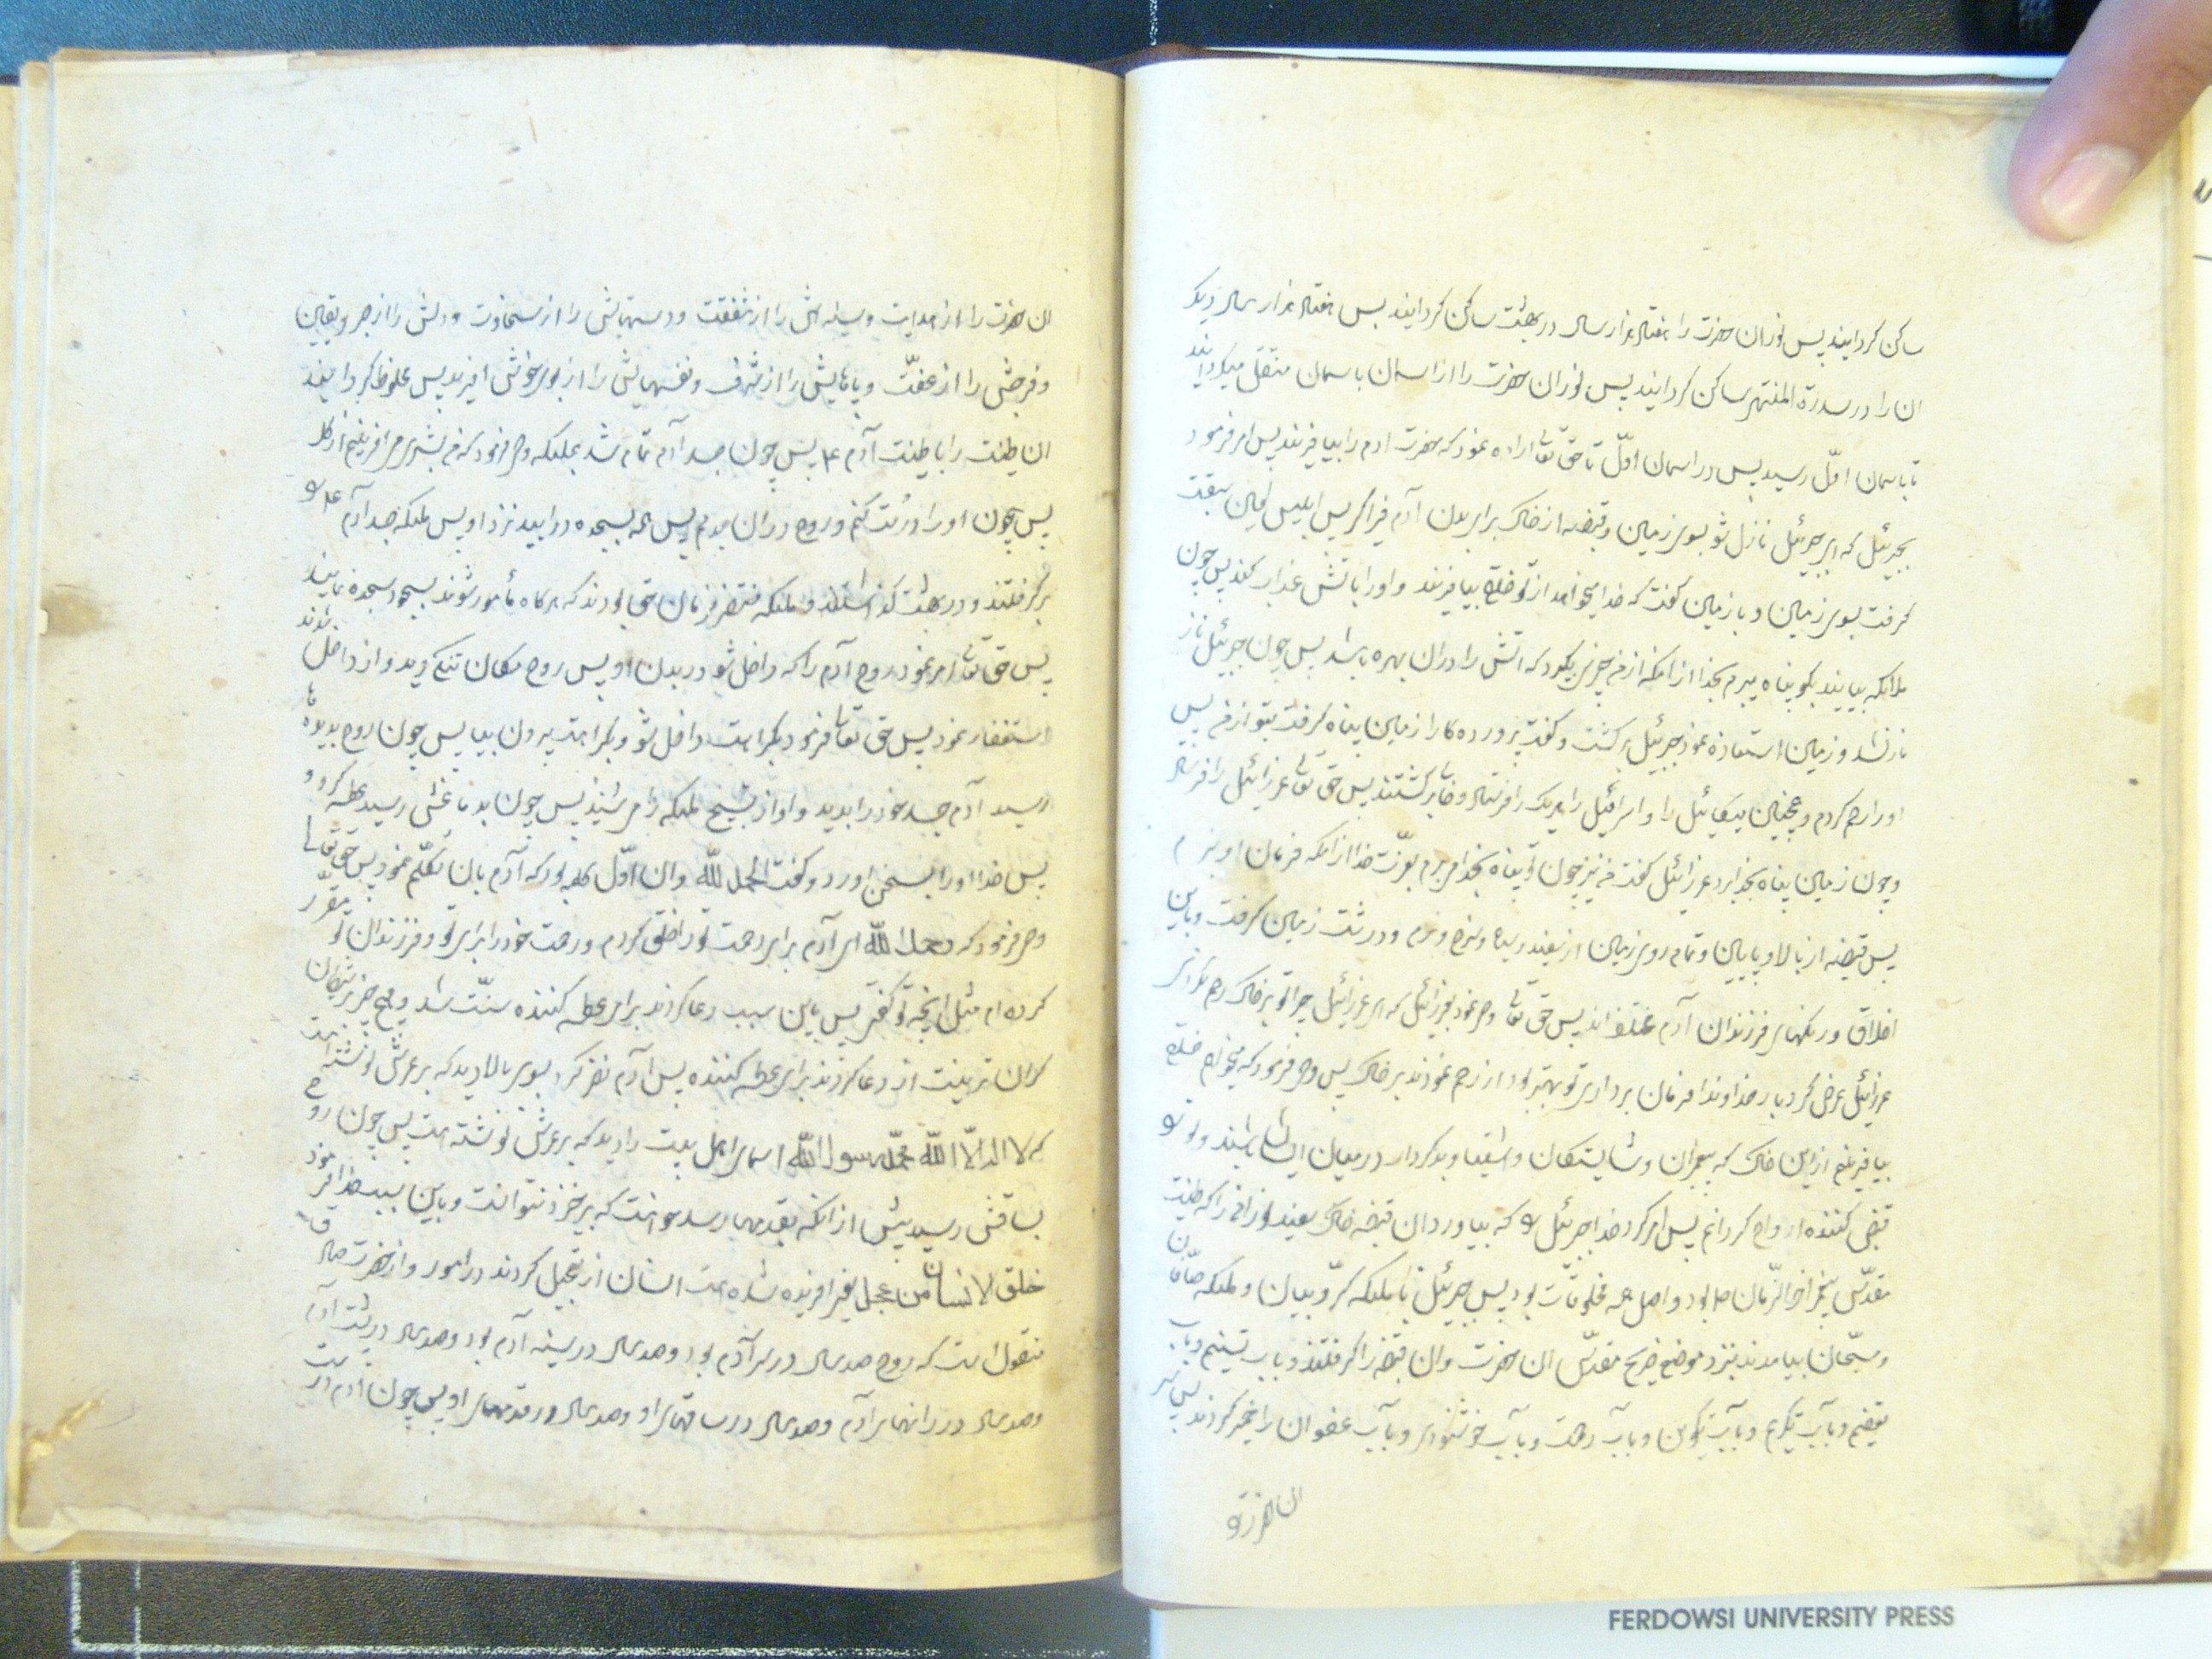 ساکن کردانید پس نور ان حضرت را هفتاد هزار سال در بهشت ساکن کردانید پس هفتاد هزار سال دیکر
ان را در سدرة المنتهی ساکن کردانید پس نور ان حضرت را از اسمان باسمان منتقل میکردانید
تا باسمان اوّل رسید پس در اسمان اوّل تا حق تعالی اراده نمود که حضرت ادم را بیافریند پس امر فرمود
بجبرئیل که ای جبرئیل نازل شو بسوی زمین و قبضه از خاک برای بدن آدم فراکیر پس ابلیس لعین سبقت
کرفت بسوی زمین و با زمین کفت که خدا میخواهد از تو خلقی بیافریند و او را باتش عذاب کند پس چون
ملایکه بیایند بکو پناه میبرم بخدا از انکه از من چیزی بکیرید که اتش را در ان بهره باشد پس چون جبرئیل
نازل شد و زمین استعاذه نمود جبرئیل برکشت و کفت پرورده کارا زمین پناه کرفت بتو از من پس
او را رحم کردم و همچنین میکائیل را و اسرافیل را هریک را فرستاد و برکشتند پس حق تعالی عزرائیل را فرستاد
و چون زمین پناه بخدا برد عزرائیل کفت من نیز پناه بخدا میبرم بعزّت خدا از انکه فرمان او نبرم
پس قبضه از بالا و پایین و تمام روی زمین از سفید و سیاه و سرخ و نرم و درشت زمین کرفت و باین
اخلاق و رنکهای فرزندان آدم مختلف اند پس حق تعالی وحی نمود بعزرائیل که ای عزرائیل چرا تو بر خاک رحم نکردی
عزرائیل عرض کرد بار خداوندا فرمان برداری تو بهتر بود از رحم نمودن بر خاک پس وحی فرمود که میخواهم خلقی
بیافرینم از این خاک که پیغمبران و شایستکان و اشقیا و بدکردار در میان ایشان باشند و تو را
قبض کننده ارواح کردانم پس امر کرد خدا جبرئیل را که بیاورد ان قبضه خاک سفید نورانی را که طینت
مقدّس پیغمبر اخر الزّمان بود و اصل همه مخلوقات بود پس جبرئیل با ملیکه کرّوبیان و ملیکه صافّان
و مسبّحان بیامدند نزد موضع ضریح مقدّس ان حضرت و ان قبضه را کرفتند و باب تسنیم و باب
تعظیم و بآب تکریم و بآب تکوین و بآب رحمت و بآب خوشنودی و بآب عفو ان را خمیر کردند پس سر
ان حضرت را
ان حضرت را از هدایت و سینه اش را از شفقت و دستهایش را از سخاوت و دلش را از صبر و یقین
و فرجش را از عفّت و پاهایش را از شرف و نفسهایش را از بوی خوش افرید پس مخلوط کردانید
ان طینت را با طینت آدم پس چون جسد آدم تمام شد بملیکه وحی فرمود که من بشری می افرینم از کل
پس چون او را درست کنم و روح در ان بدمم پس همه بسجده درایید نزد او پس ملیکه جسد آدم را
برکرفتند و در بهشت کذاشتند و ملیکه منتظر فرمان حق بودند که هرکاه مأمور شوند بسجود سجده نمایند
پس حق تعالی امر نمود روح آدم را که داخل شو در بدن او پس روح مکان تنکی دید و از داخل شدن
استعفا نمود پس حق تعالی فرمود بکراهت داخل شو و بکراهت بیرون بیا پس چون روح بدیده ها
رسید آدم جسد خود را بدید و اواز تسبیح ملیکه را می شنید پس چون بدماغش رسید عطسه کرد و
پس خدا او را بسخن اورد و کفت الحمد لله و ان اوّل کلمه بود که آدم بان تکلّم نمود پس حق تعالی
وحی فرمود که رحمک الله ای آدم برای رحمت تو را خلق کردم و رحمت خود را برای تو و فرزندان تو مقرّر
کرده ام مثل انچه تو کفتی پس باین سبب دعا کردن برای عطسه کننده سنّت شد و هیچ چیز بر شیطان
کران تر نیست از دعا کردن برای عطسه کننده پس آدم نظر کرد بسوی بالا دید که بر عرش نوشته است
که لا اله الّا الله محمّد رسول الله اسمای اهل بیت را دید که بر عرش نوشته است پس چون روح
بساقش رسید پیش از انکه بقدمها رسد خواست که برخیزد نتوانست و باین سبب خدا فرمود
خلق الانسان من عجل یعنی افریده شده است انسان از تعجیل کردن در امور و از حضرت صادق
منقول است که روح صد سال در سر آدم بود و صد سال در سینه آدم بود و صد سال در پشت آدم
و صد سال در رانهای آدم و صد سال در ساقهای او و صد سال در قدمهای او پس چون ادم
FERDOWSI UNIVERSITY PRESS